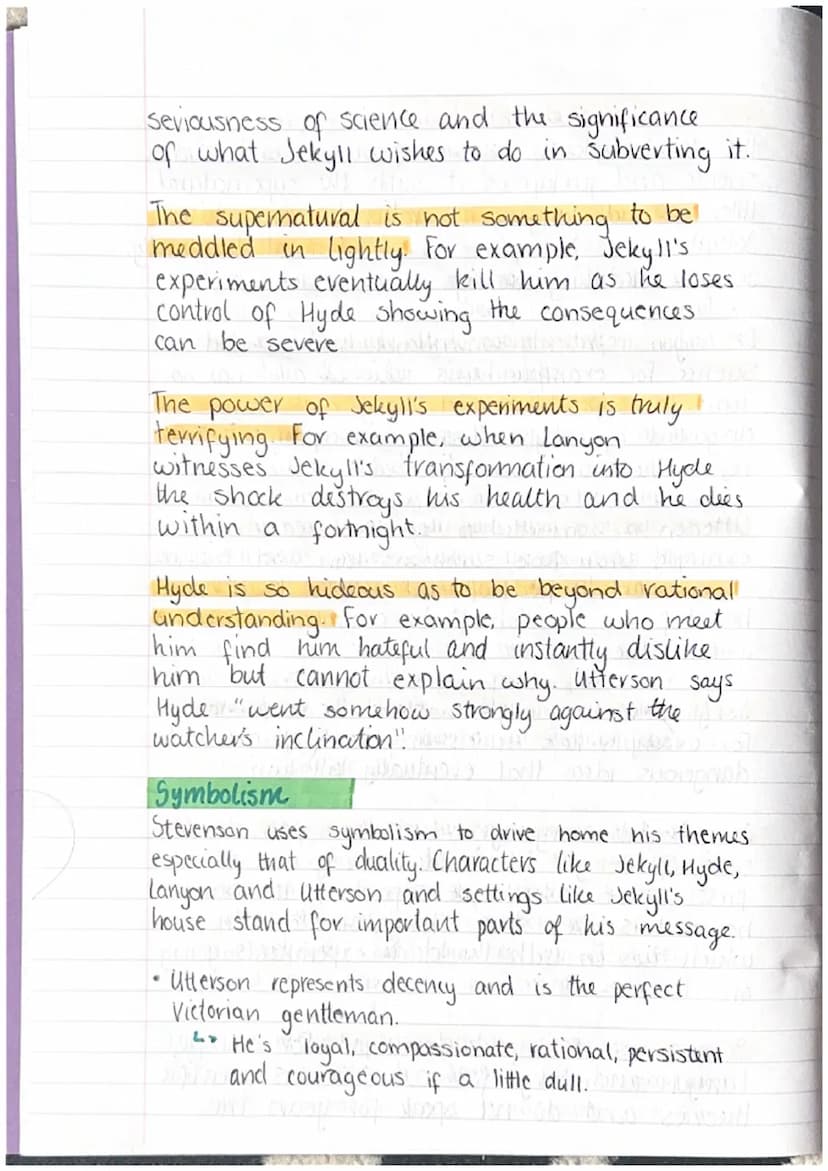 seriousness of science and the significance
of what Jekyll wishes to do in subverting it.
The supernatural is not something to be
meddled in lightly. For example, Jekyll's
experiments eventually kill him as he loses
control of Hyde showing the consequences
can be severe
The power of Jekyll's experiments is truly
terrifying. For example, when Lanyon
witnesses Jekyll's transformation into Hyde
the shock destroys his health and he dies
within a fortnight.
Hyde is so hideous as to be beyond rational
understanding. For example, people who meet
him find him hateful and instantly dislike
him but cannot explain why. Utterson says
Hyde "went somehow strongly against the
watcher's inclination".
Symbolism
Stevenson uses symbolism to drive home his themes
especially that of duality. Characters like Jekyll, Hyde,
Lanyon and Utterson and settings like Jekyll's
house stand for important parts of his message.
• Utterson represents decency and is the perfect
Victorian gentleman.
↳ He's loyal, compassionate, rational, persistent
and courageous if a little dull.